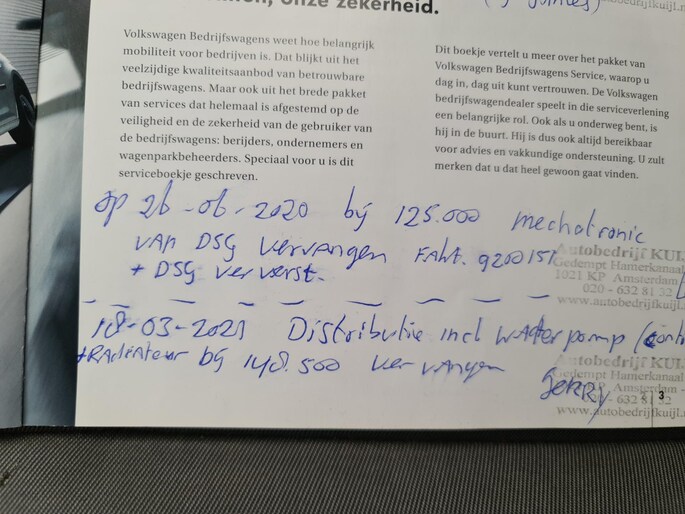 onze zekerheid.
Volkswagen Bedrijfswagens weet hoe belangrijk
mobiliteit voor bedrijven is. Dat blijkt uit het
veelzijdige kwaliteitsaanbod van betrouwbare
bedrijfswagens. Maar ook uit het brede pakket
van services dat helemaal is afgestemd op de
veiligheid en de zekerheid van de gebruiker van
de bedrijfswagens: berijders, ondernemers en
wagenparkbeheerders. Speciaal voor u is dit
serviceboekje geschreven.
Dit boekje vertelt u meer over het pakket van
Volkswagen Bedrijfswagens Service, waarop u
dag in, dag uit kunt vertrouwen. De Volkswagen
bedrijfswagendealer speelt in die serviceverlening
een belangrijke rol. Ook als u onderweg bent, is
hij in de buurt. Hij is dus ook altijd bereikbaar
voor advies en vakkundige ondersteuning. U zult
merken dat u dat heel gewoon gaat vinden.
op 26-06-2020 bij 125.000 mechatronic
van DSG vervangen Fakt. 9200151
+ DSG ververst.
Autobedrijf KUIJ
Gedempt Hamerkanaal
1021 KP Amsterdam
020 - 632 81 32
www.autobedrijfkuijl
18-03-2021 Distributie incl waterpomp
+ Radiateur bij 148.500 vervangen
Gerry
Autobedrijf KUIJ
Gedempt Hamerkanaal
KP Amsterdam
- 632 81 32
www.autobedrijfkuijl.n
3